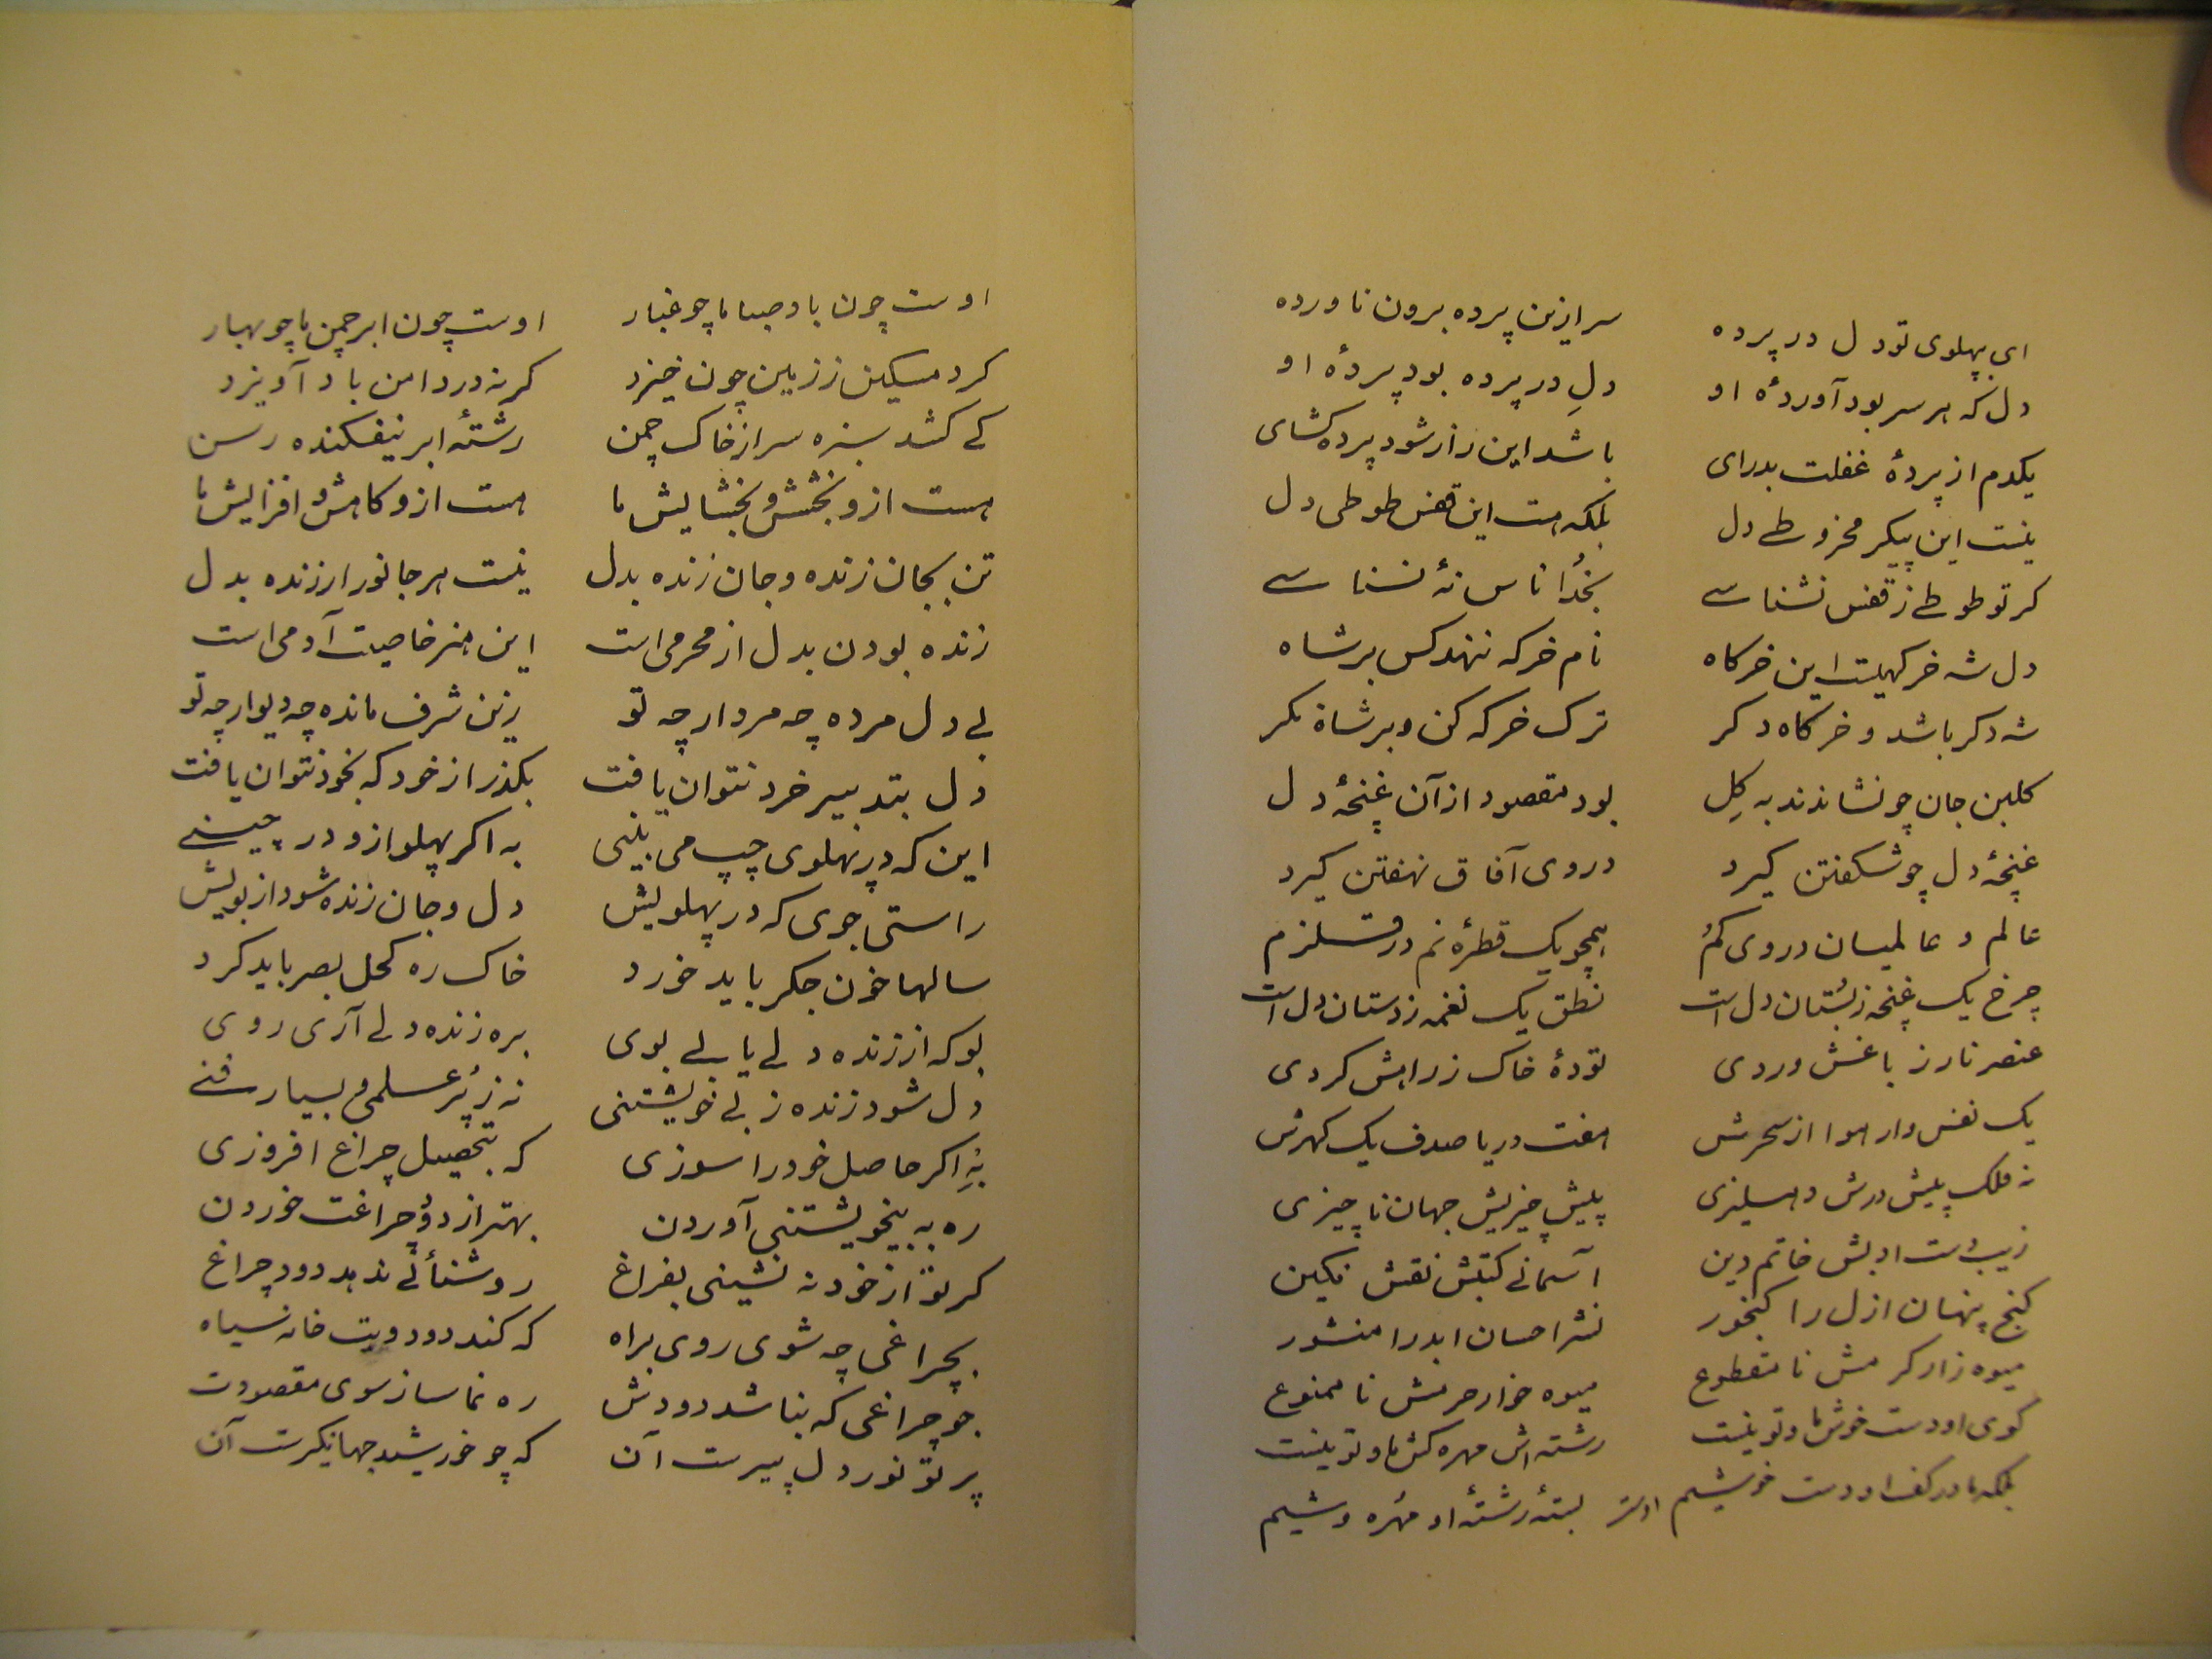 ای بپهلوی تو دل در پرده سر ازین پرده برون ناورده
دل که هر سر بود آوردهٔ او دلِ در پرده بود پردهٔ او
یکدم از پردهٔ غفلت بدرای باشد این راز شود پرده کشای
نیست این پیکر مخروطے دل بلکه هست این قفس طوطی دل
کر تو طوطے ز قفس نشناسے بخدا ناس نهٔ نسناسے
دل شه خرکهیست این خرکاه نام خرکه ننهد کس بر شاه
شه دکر باشد و خرکاه دکر ترک خرکه کن و بر شاه نکر
کلبن جان چو نشاندند به کِل بود مقصود از آن غنچهٔ دل
غنچهٔ دل چو شکفتن کیرد در وی آفاق نهفتن کیرد
عالم و عالمیان در وی کُم همچو یک قطرهٔ نم در قلزم
چرخ یک غنچه ز بُستان دل است نطق یک نغمه ز دستان دل است
عنصر نار ز باغش وردی تودهٔ خاک ز راهش کردی
یک نفس وار هوا از سحرش هفت دریا صدف یک کهرش
نه فلک پیش درش دهلیزی پیش چیزیش جهان ناچیزی
زیب دست ادبش خاتم دین آسمانے کتبش نقش نکین
کنج پنهان ازل را کنجور نشر احسان ابد را منشور
میوه زار کرمش نا مقطوع میوه خوار حرمش نا ممنوع
کوی او دست خوش ما و تو نیست رشته اش مهره کش ما و تو نیست
بلکه ما در کف او دست خوشیم بستهٔ رشتهٔ او مُهره وشیم
اوست
اوست چون باد صبا ما چو غبار اوست چون ابر چمن ما چو بهار
کرد مسکین ز زمین چون خیزد کر نه در دامن باد آویزد
کے کشد سبزه سر از خاک چمن رشتهٔ ابر نیفکنده رسن
هست ازو بخشش و بخشایش ما هست ازو کاهش و افزایش ما
تن بجان زنده و جان زنده بدل نیست هر جانور ار زنده بدل
زنده بودن بدل از محرمی است این هنر خاصیت آدمی است
بے دل مرده چه مردار چه تو زین شرف مانده چه دیوار چه تو
دل بتدبیر خرد نتوان یافت بکذر از خود که بخود نتوان یافت
این که در پهلوی چپ می بینی به اکر پهلو ازو در چینے
راستی جوی که در پهلویش دل و جان زنده شود از بویش
سالها خون جکر باید خورد خاک ره کحل بصر باید کرد
بو که از زنده دلے یابے بوی بره زنده دلے آری روی
دل شود زنده ز بے خویشتنی نه ز پُر علمی و بسیار فنے
بهِ اکر حاصل خود را سوزی که بتحصیل چراغ افروزی
ره به بیخویشتنی آوردن بهتر از دوُد چراغت خوردن
کر تو از خود نه نشینی بفراغ روشنائے ندهد دود چراغ
بچراغی چه شوی روی براه که کند دود ویت خانه سیاه
جو چراغی که نباشد دودش ره نما ساز سوی مقصودت
پرتو نور دل پیرست آن که چو خورشید جهانکیرست آن